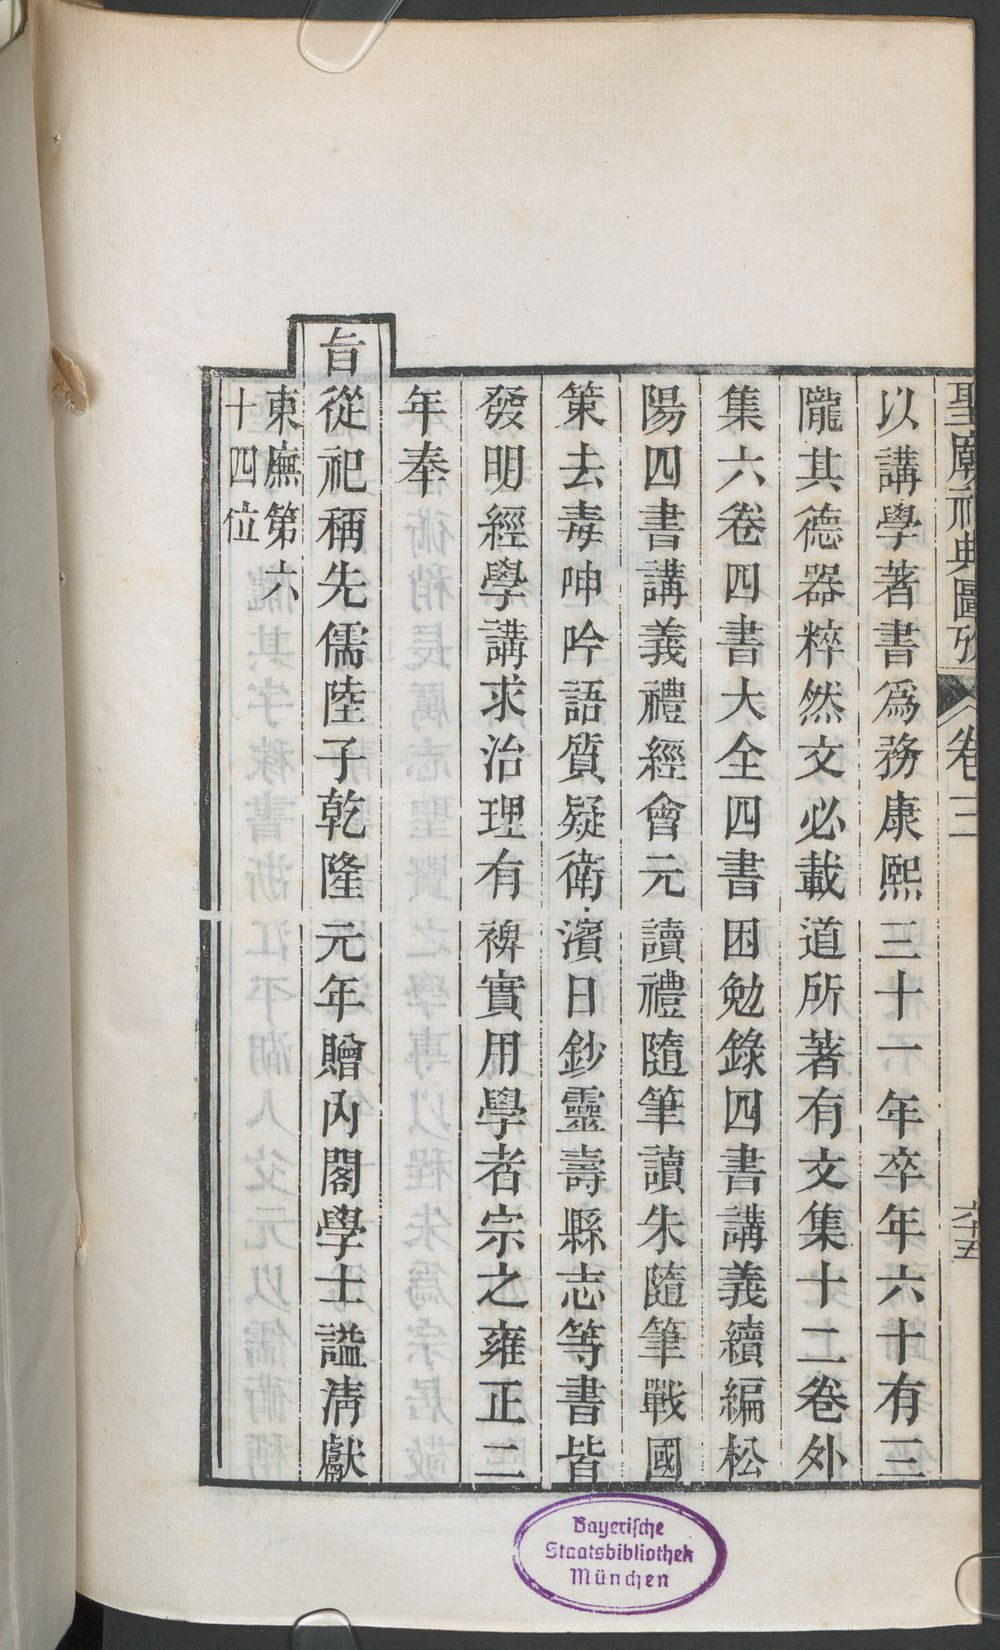 聖廟祀典圖攷 卷三 六十五
以講學著書爲務康熙三十一年卒年六十有三
隴其德器粹然文必載道所著有文集十二卷外
集六卷四書大全四書困勉錄四書講義續編松
陽四書講義禮經會元讀禮隨筆讀朱隨筆戰國
策去毒呻吟語質疑衛濱日鈔靈壽縣志等書皆
發明經學講求治理有裨實用學者宗之雍正二
年奉
旨從祀稱先儒陸子乾隆元年贈內閣學士謚清獻
東廡第六
十四位
Bayerische
Staatsbibliothek
München